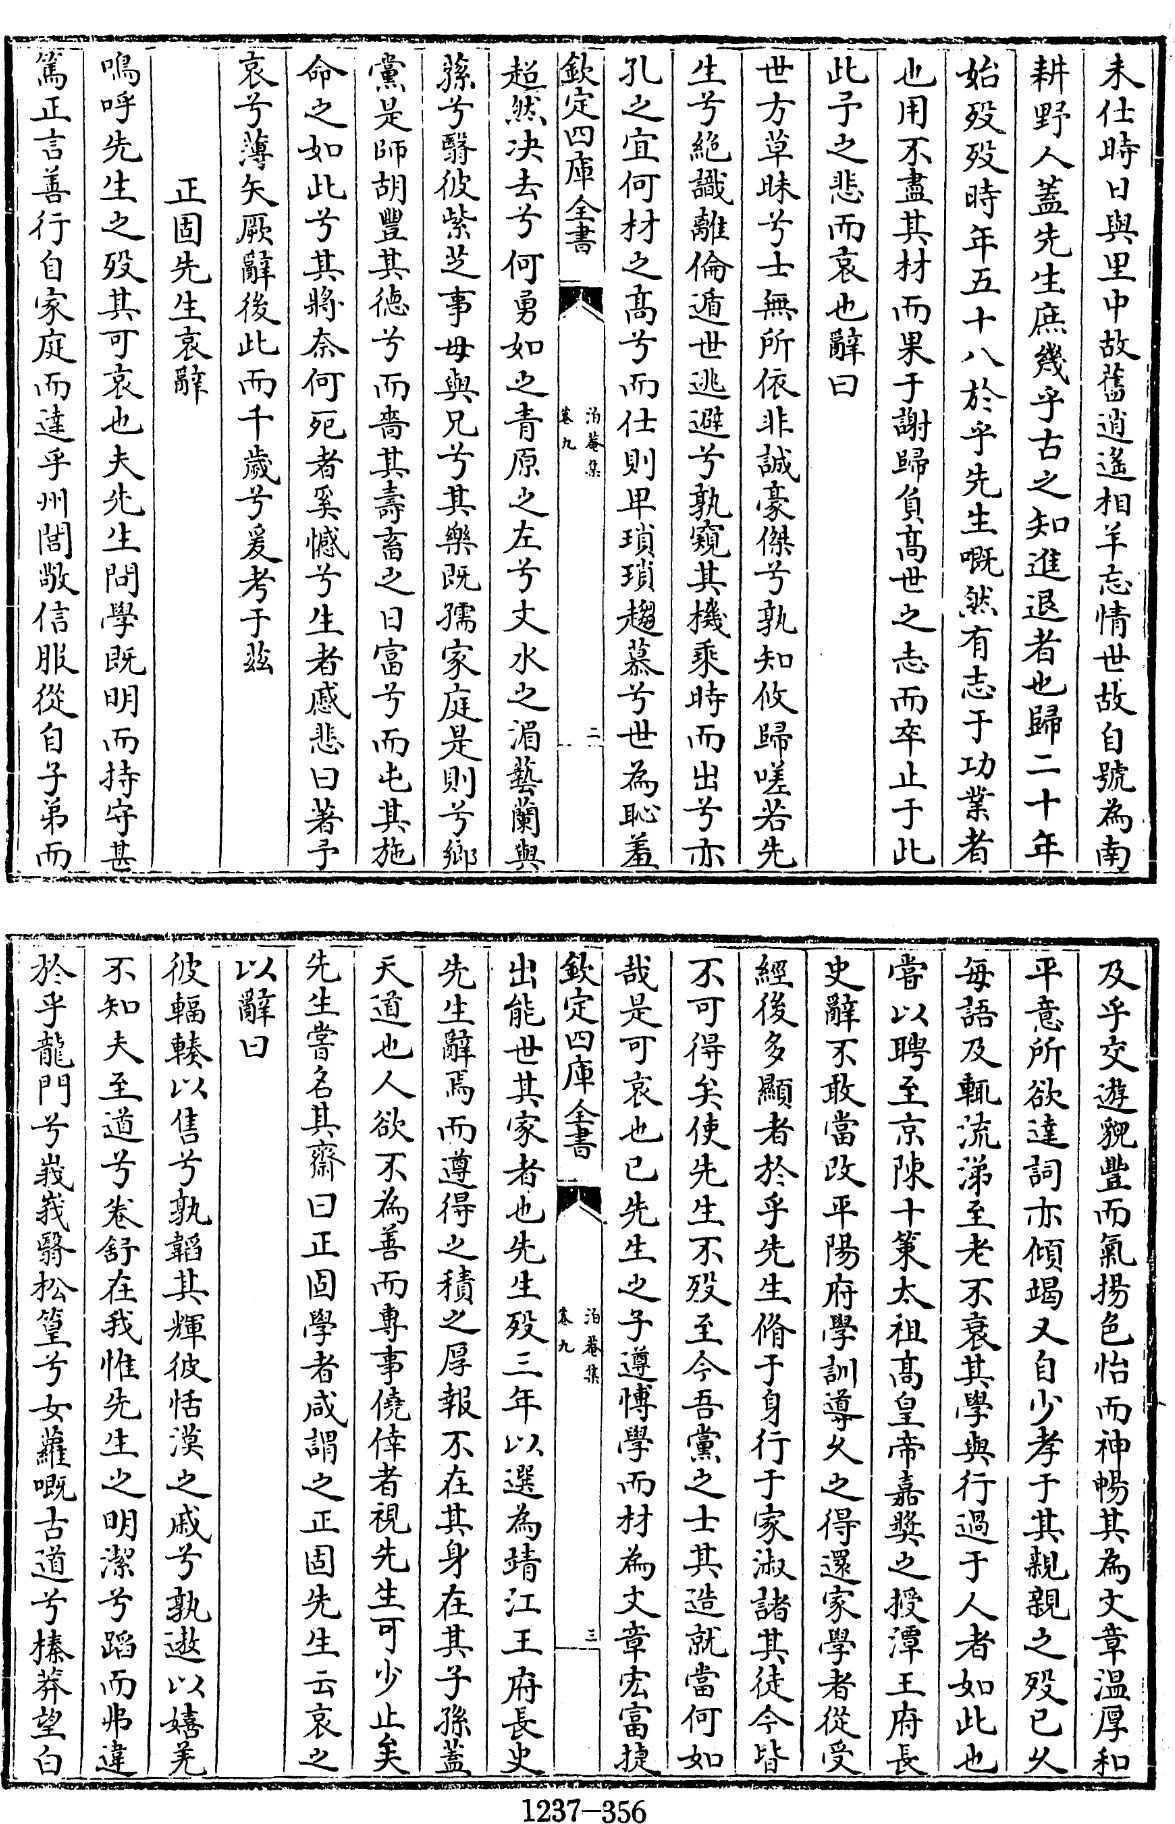 未仕時日與里中故舊逍遙相羊忘情世故自號為南
耕野人蓋先生庶幾乎古之知進退者也歸二十年
始歿歿時年五十八於乎先生嘅然有志于功業者
也用不盡其材而果于謝歸負高世之志而卒止于此
此予之悲而哀也辭曰
世方草昧兮士無所依非誠豪傑兮孰知攸歸嗟若先
生兮絶識離倫遁世逃避兮孰窺其機乘時而出兮亦
孔之宜何材之高兮而仕則卑瑣瑣趨慕兮世為恥羞
欽定四庫全書
泊菴集
卷九
二
超然决去兮何勇如之青原之左兮文水之湄藝蘭與
蓀兮翳彼紫芝事母與兄兮其樂既孺家庭是則兮鄉
黨是師胡豐其德兮而嗇其壽畜之日富兮而屯其施
命之如此兮其將奈何死者奚憾兮生者慼悲曰著予
哀兮薄矢厥辭後此而千歲兮爰考于茲
正固先生哀辭
嗚呼先生之歿其可哀也夫先生問學既明而持守甚
篤正言善行自家庭而達乎州閭敬信服從自子弟而
及乎交遊貌豐而氣揚色怡而神暢其為文章溫厚和
平意所欲達詞亦傾竭又自少孝于其親親之歿已久
每語及輒流涕至老不衰其學與行過于人者如此也
嘗以聘至京陳十策太祖高皇帝嘉獎之授潭王府長
史辭不敢當改平陽府學訓導久之得還家學者從受
經後多顯者於乎先生脩于身行于家淑諸其徒今皆
不可得矣使先生不歿至今吾黨之士其造就當何如
哉是可哀也已先生之子遵博學而材為文章宏富捷
欽定四庫全書
泊菴集
卷九
三
出能世其家者也先生歿三年以選為靖江王府長史
先生辭焉而遵得之積之厚報不在其身在其子孫蓋
天道也人欲不為善而專事僥倖者視先生可少止矣
先生嘗名其齋曰正固學者咸謂之正固先生云哀之
以辭曰
彼輻輳以售兮孰韜其輝彼恬漠之戚兮孰遨以嬉羌
不知夫至道兮卷舒在我惟先生之明潔兮蹈而弗違
於乎龍門兮峩峩翳松篁兮女蘿嘅古道兮榛莽望白
1237-356